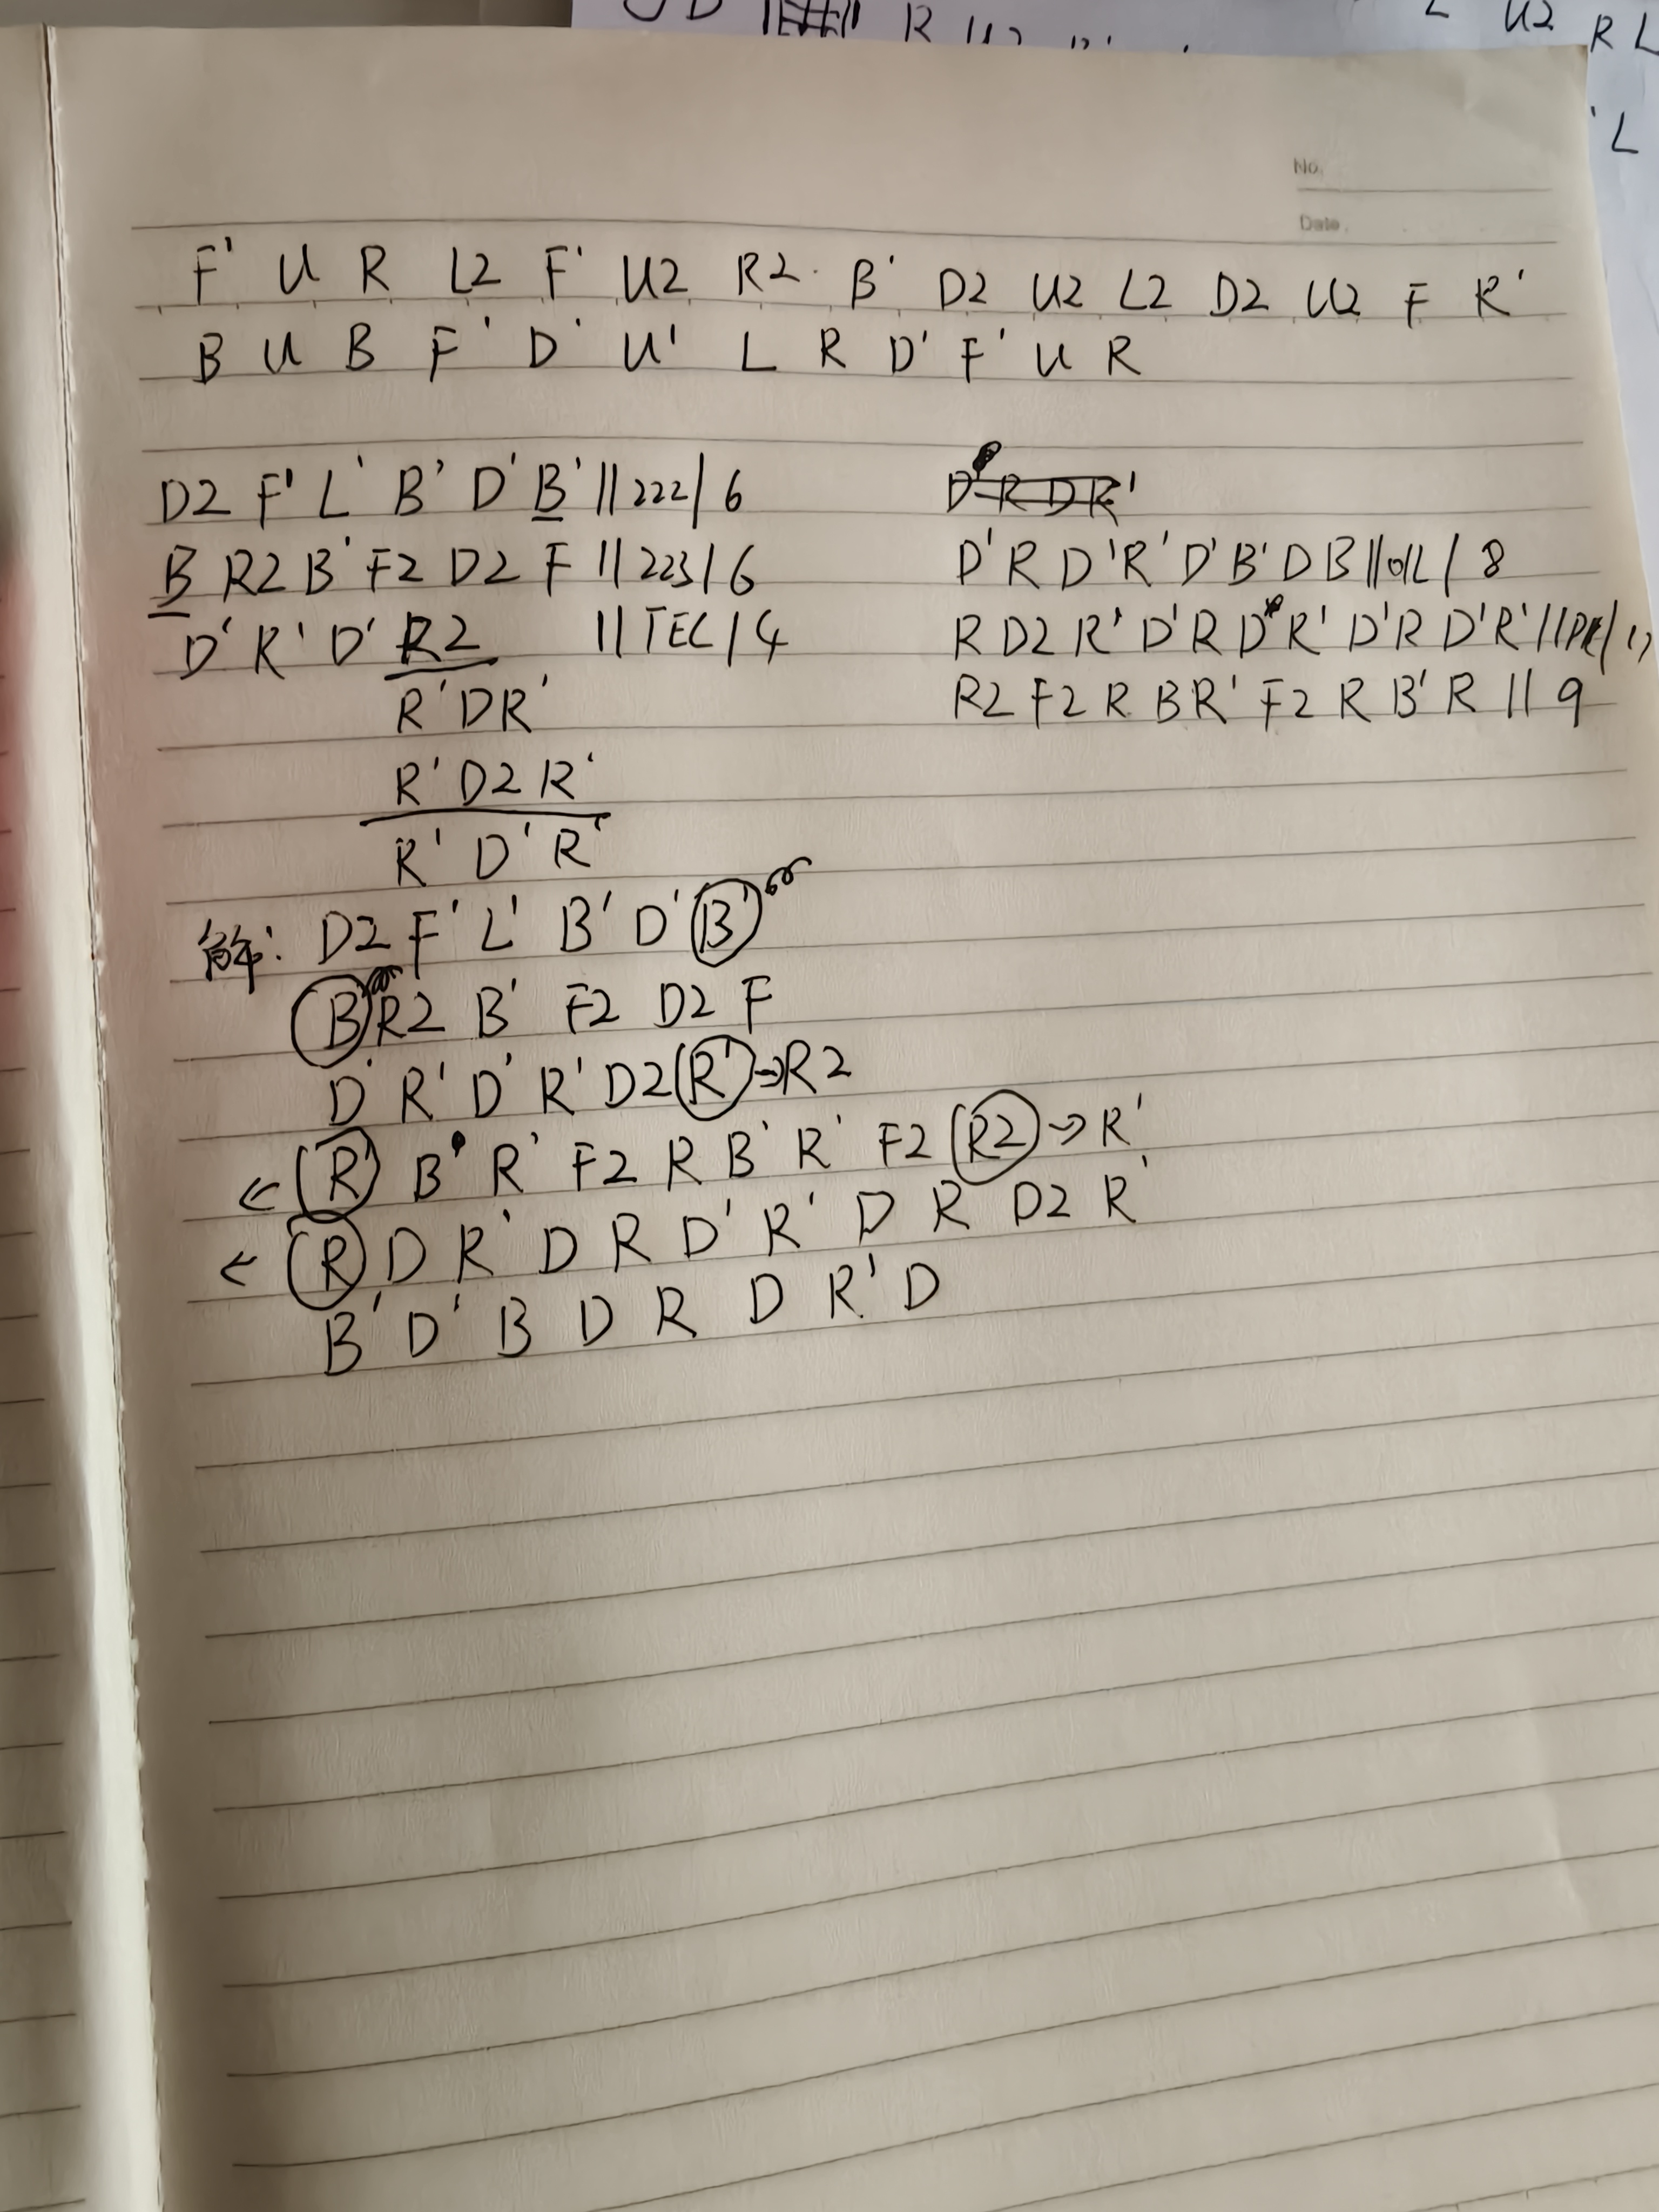 R U2
L U2 R L
L
No.
Date.
F' U R L2 F' U2 R2 B' D2 U2 L2 D2 U2 F R'
B U B F' D' U' L R D' F' U R
D2 F' L' B' D' B' // 222 / 6
B R2 B' F2 D2 F // 223 / 6
D' R' D' R2 // TEC / 4
R' D R'
R' D2 R'
R' D' R'
D' R D R'
D' R D' R' D' B' D B // oll / 8
R D2 R' D' R D R' D' R D' R' //
R2 F2 R B R' F2 R B' R // 9
解: D2 F' L' B' D' B'
B R2 B' F2 D2 F
D' R' D' R' D2 R' → R2
← R' B' R' F2 R B' R' F2 R2 → R'
← R D R' D R D' R' D R D2 R'
B' D' B D R D R' D